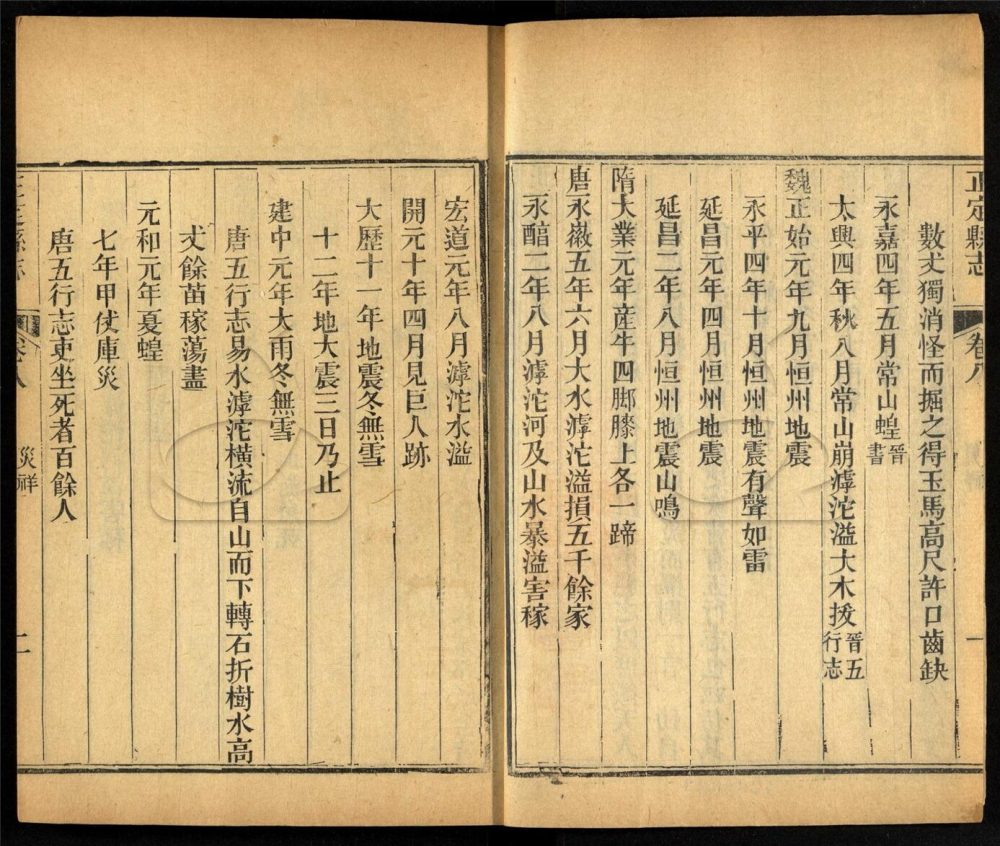 正定縣志
卷八
一
數丈獨消怪而掘之得玉馬高尺許口齒缺
永嘉四年五月常山蝗晉書
太興四年秋八月常山崩滹沱溢大木拔晉五行志
魏正始元年九月恒州地震
永平四年十月恒州地震有聲如雷
延昌元年四月恒州地震
延昌二年八月恒州地震山鳴
隋大業元年産牛四脚膝上各一蹄
唐永徽五年六月大水滹沱溢損五千餘家
永醕二年八月滹沱河及山水暴溢害稼
宏道元年八月滹沱水溢
開元十年四月見巨人跡
大歷十一年地震冬無雪
十二年地大震三日乃止
建中元年大雨冬無雪
唐五行志易水滹沱橫流自山而下轉石折樹水高
丈餘苗稼蕩盡
元和元年夏蝗
七年甲仗庫災
唐五行志吏坐死者百餘人
正定縣志
卷八
災祥
二